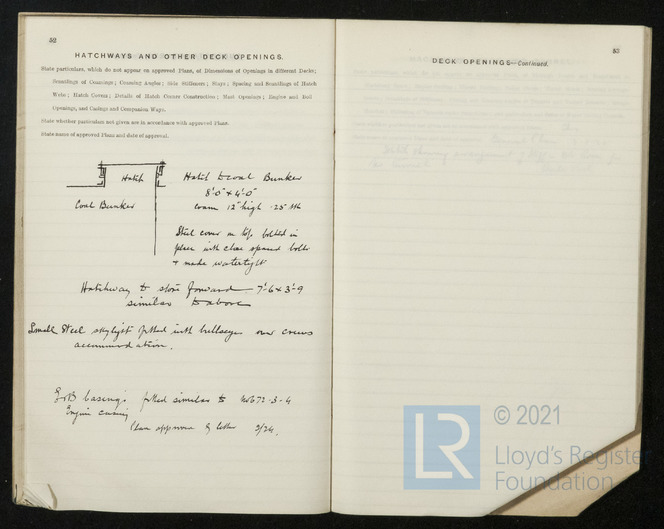 52
HATCHWAYS AND OTHER DECK OPENINGS.
State particulars, which do not appear on approved Plans, of Dimensions of Openings in different Decks;
Scantlings of Coamings; Coaming Angles; Side Stiffeners; Stays; Spacing and Scantlings of Hatch
Webs; Hatch Covers; Details of Hatch Corner Construction; Mast Openings; Engine and Boiler
Openings, and Casings and Companion Ways.
State whether particulars not given are in accordance with approved Plans.
State name of approved Plans and date of approval.
Hatch
Coal Bunker
Hatch to coal Bunker
8'.0" x 4'.0"
coam 12" high .25" tth
Steel cover on top bolted in
place with close spaced bolts
+ made watertight
Hatchway to store forward 7'.6 x 3'.9
similar to above
Small Steel skylight fitted with bullseyes over crews
accommodation.
E & B casings fitted similar to No 672-3-4
Engine casing
Plan approved by letter 3/24.
53
DECK OPENINGS—Continued.
LR
© 2021
Lloyd's Register
Foundation